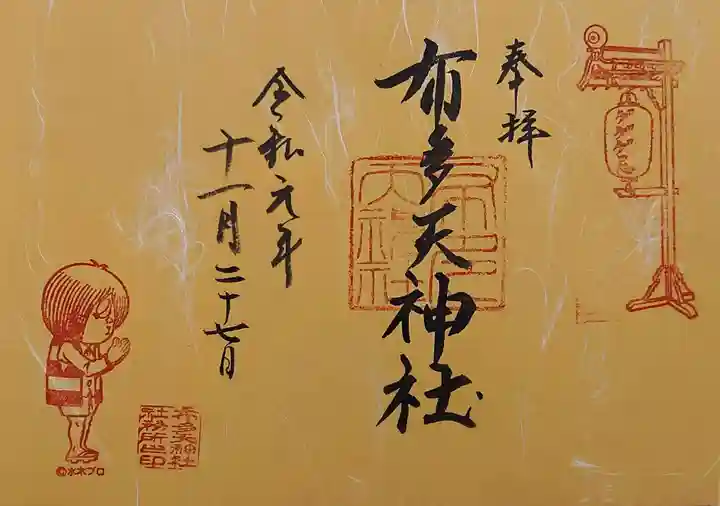 奉拝
布多天神社
令和元年
十一月二十七日
布多天神社
社務所之印
©水木プロ